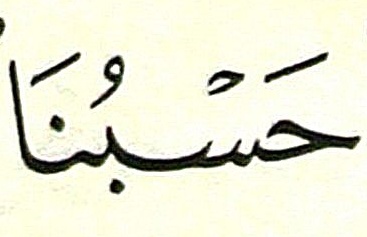 حَسْبُنَا